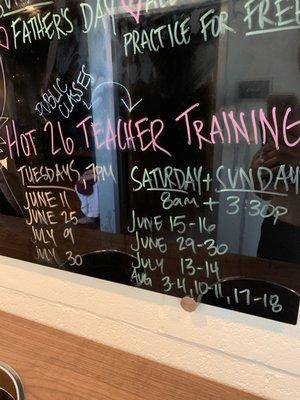 FATHERS DAY
PRACTICE FOR FREE
PUBLIC CLASSES
HOT 26 TEACHER TRAINING
TUESDAYS, 7PM
JUNE 11
JUNE 25
JULY 9
JULY 30
SATURDAY + SUNDAY
8am + 3:30p
JUNE 15-16
JUNE 29-30
JULY 13-14
AUG 3-4, 10-11, 17-18